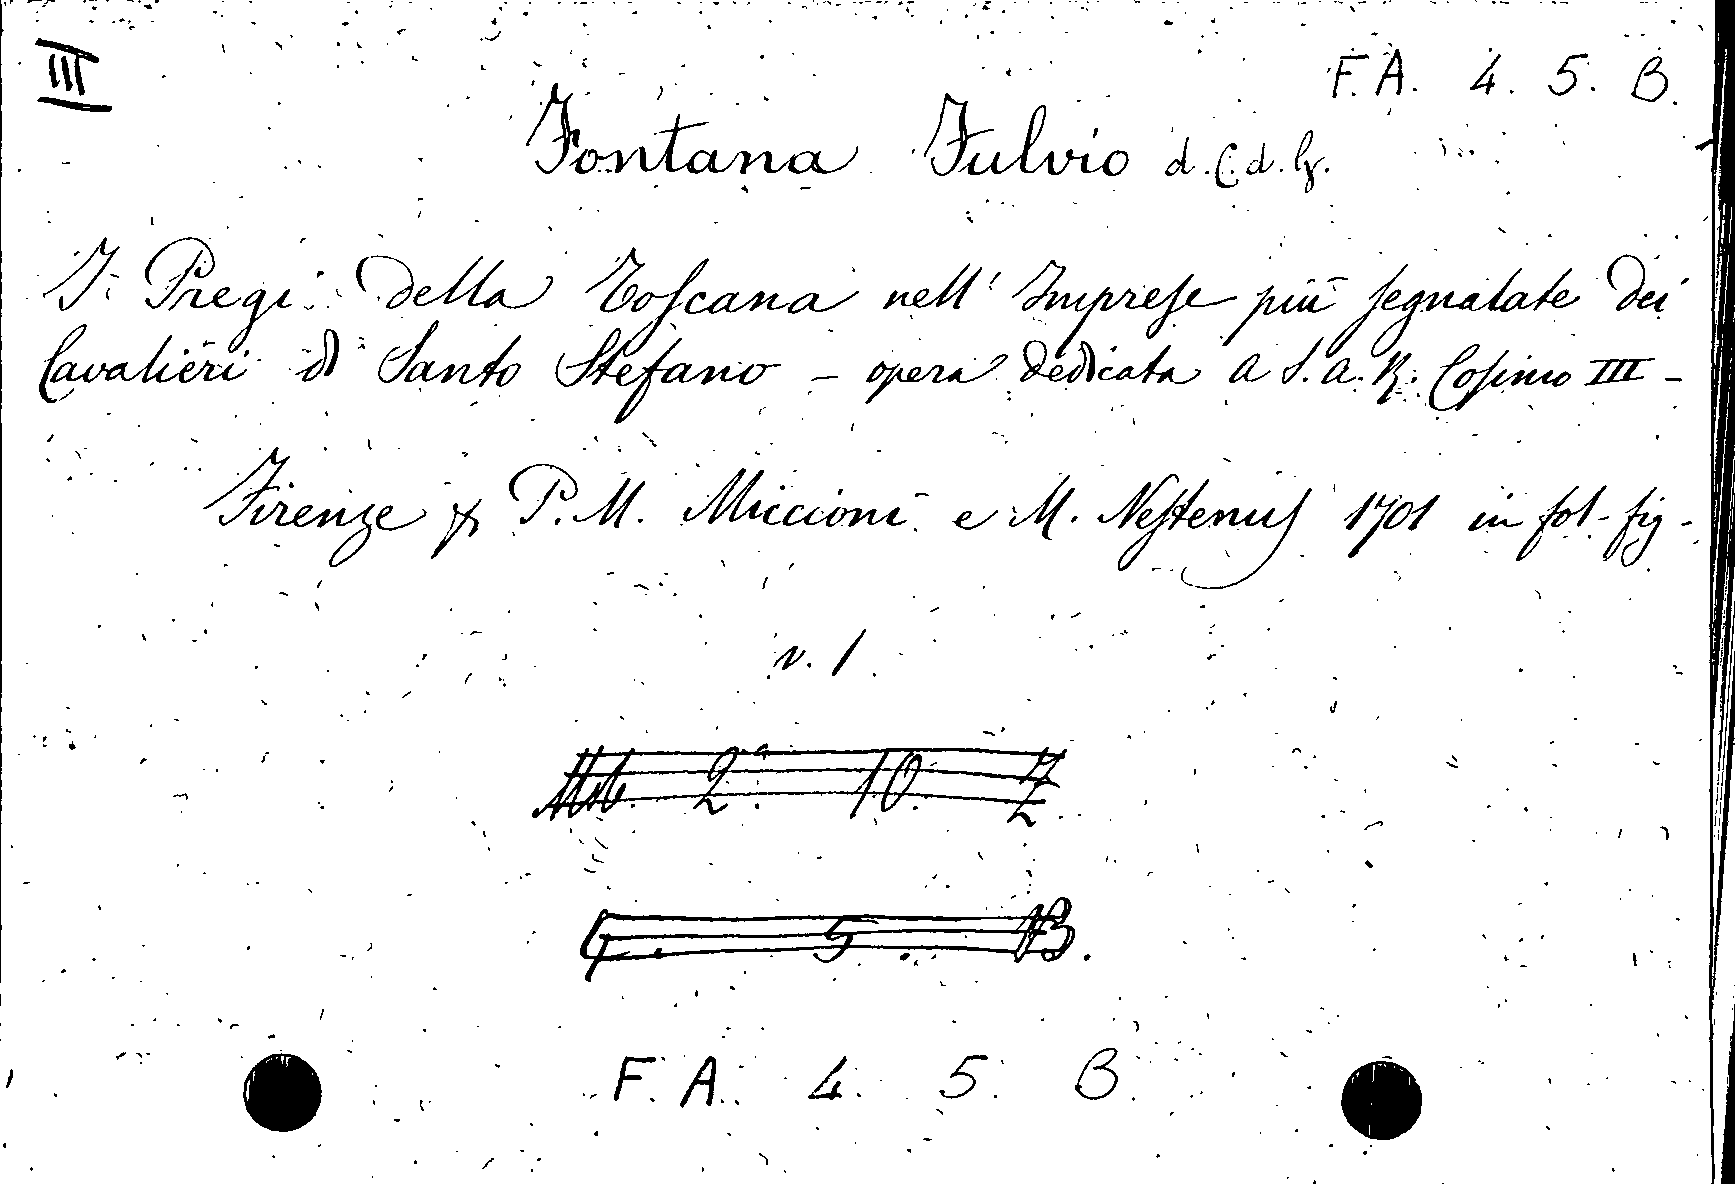 III
F. A. 4. 5. B.
Fontana Fulvio d. C. d. G.
I Pregi della Toscana nell' Imprese più segnalate dei
Cavalieri di Santo Stefano - opera dedicata a S. A. R. Cosimo III -
Firenze x P. M. Miccioni e M. Nestenus 1701 in fol - fig -
v. 1
Mib. 2ª. 10. Z
G. 5. B.
F. A. 4. 5. B